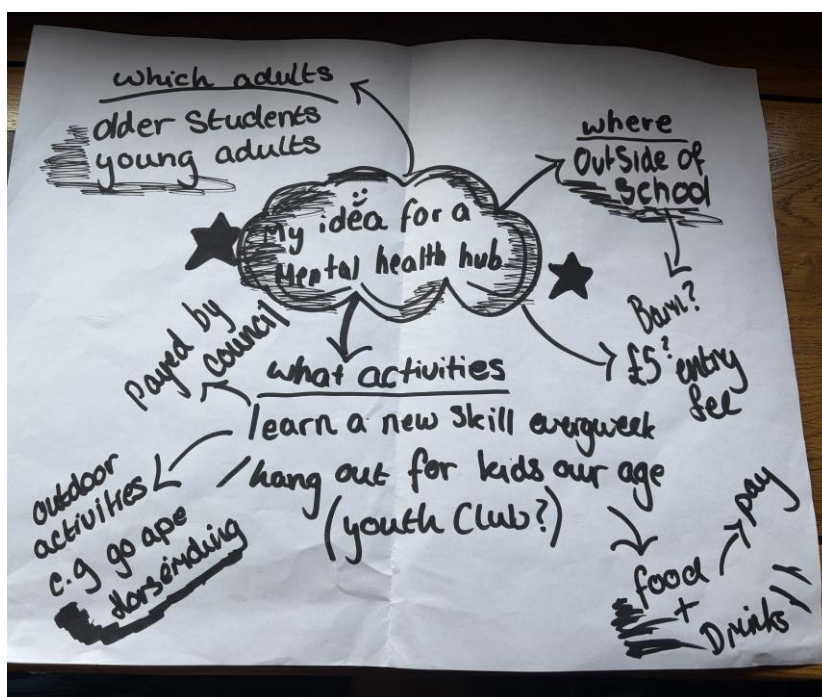 which adults
older students
young adults
where
Outside of
School
My idea for a
Mental health hub
Barn?
£5? entry
fee
Payed by
council
what activities
learn a new skill everyweek
/hang out for kids our age
(youth club?)
outdoor
activities
e.g go ape
Horseriding
food
+
Drinks
pay